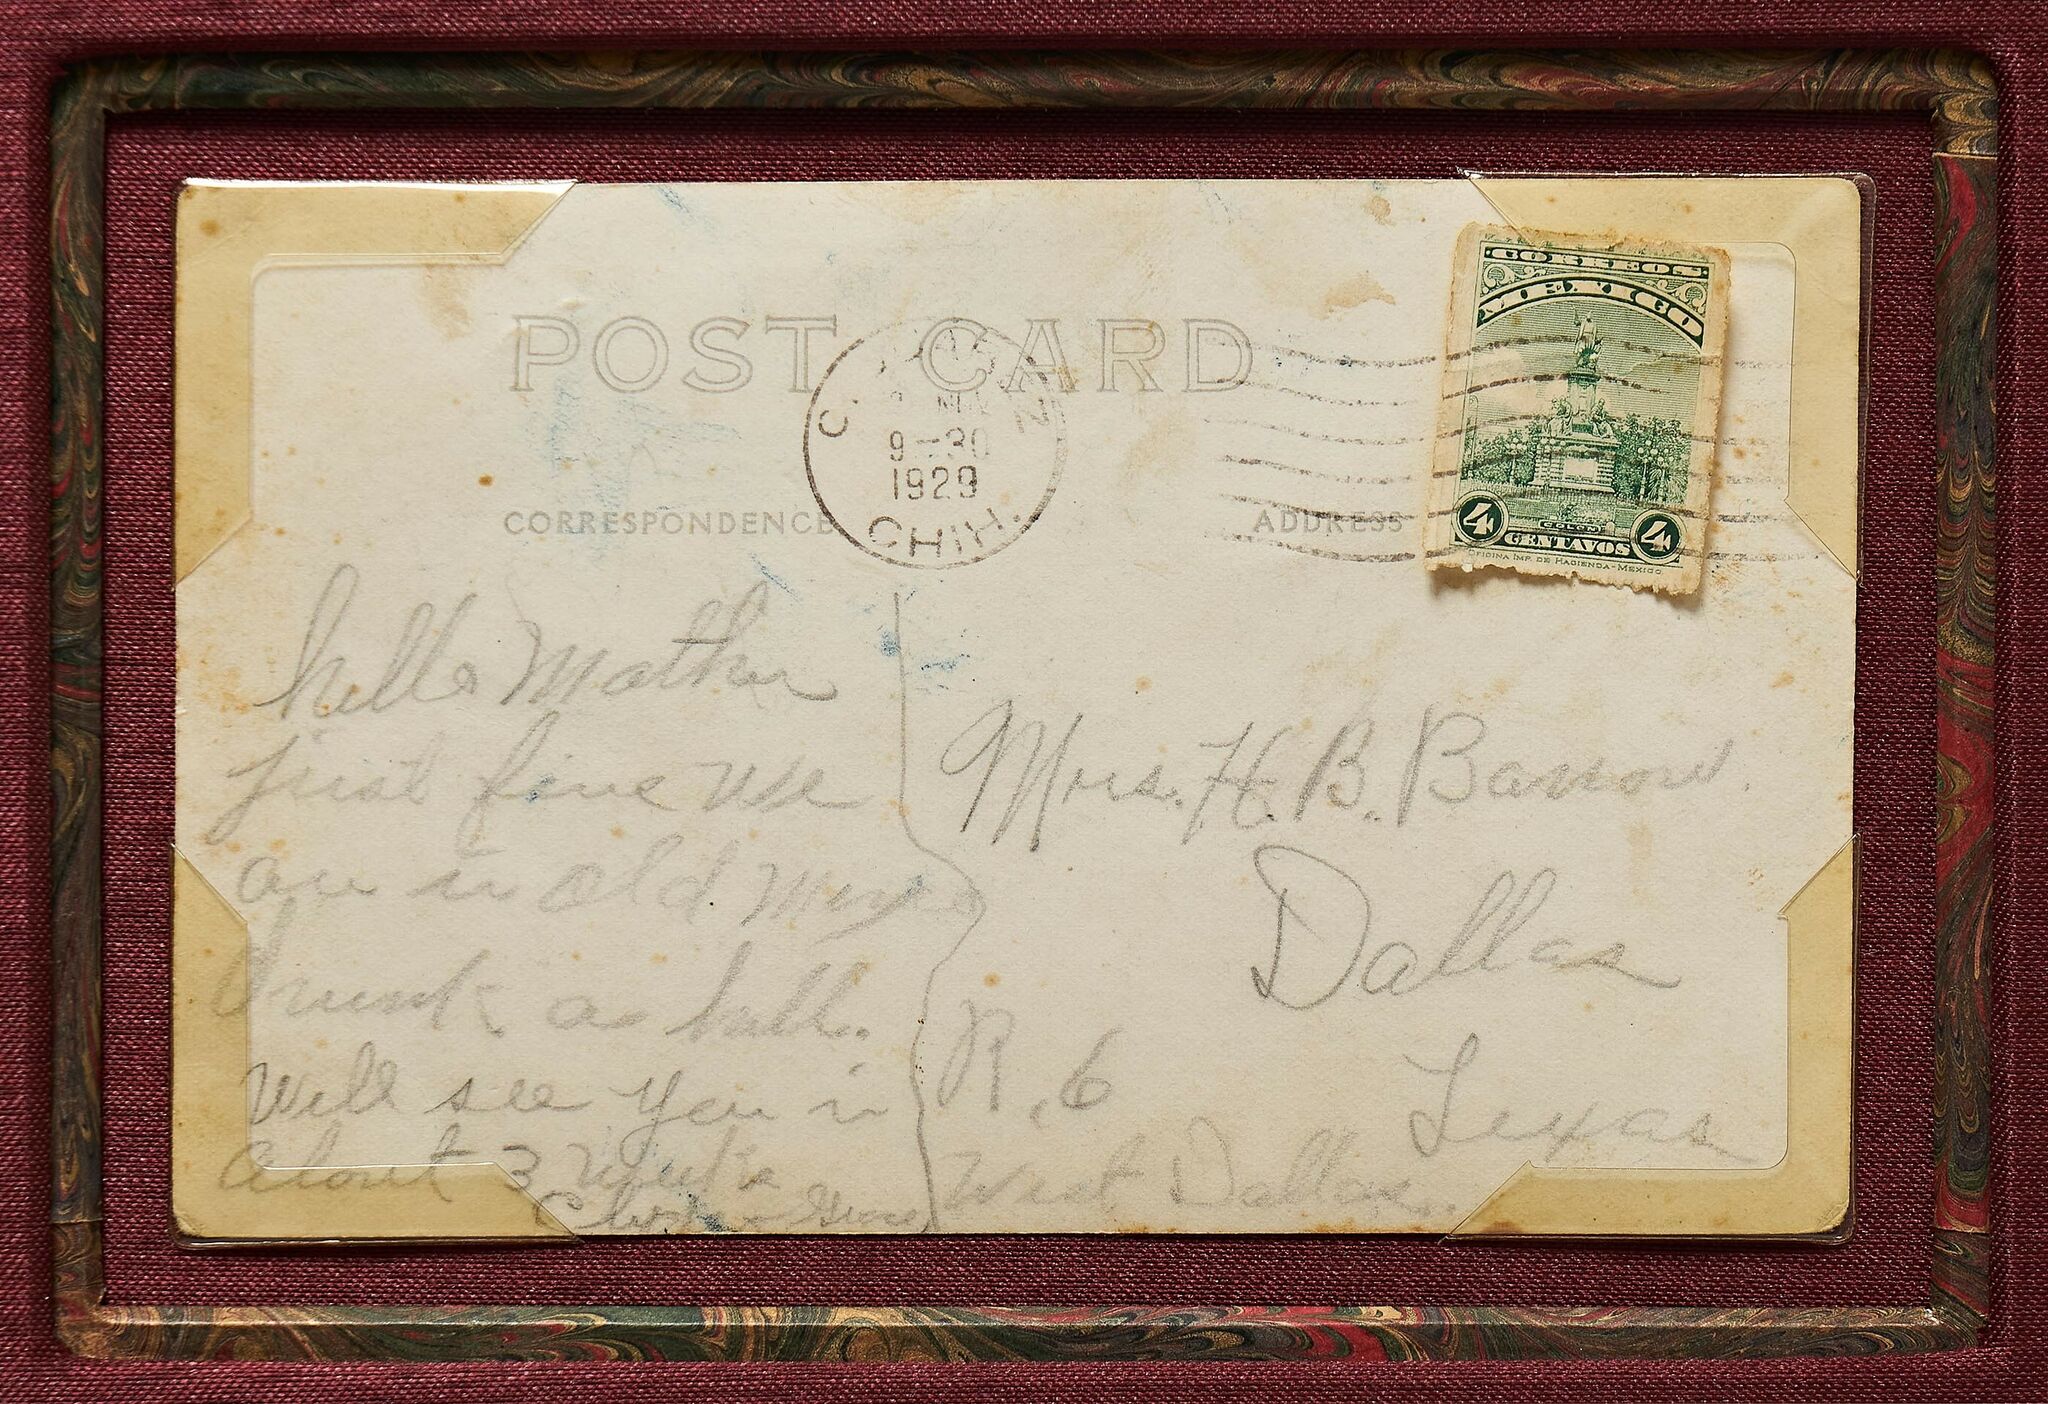 POST CARD
C. JUAREZ
9-30
1929
CHIH.
CORREOS
MEXICO
4 COLON 4
CENTAVOS
OFICINA IMP. DE HACIENDA-MEXICO
CORRESPONDENCE
ADDRESS
hello Mother
just fine we
are in old Mexico
drunk as hell.
Will see you in
about 3 weeks
Mrs. H. B. Barrow.
Dallas
Texas
R. 6
West Dallas.